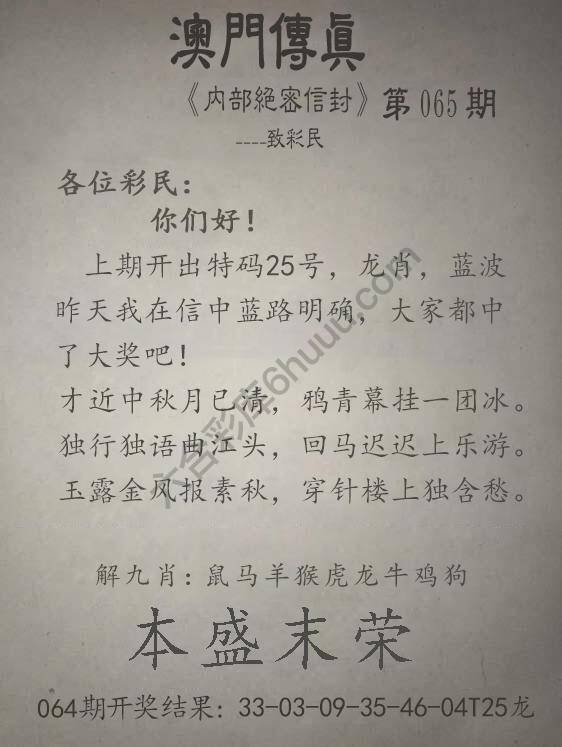 澳門傳眞
《内部絕密信封》第065期
----致彩民
各位彩民：
你们好！
上期开出特码25号，龙肖，蓝波
昨天我在信中蓝路明确，大家都中
了大奖吧！
才近中秋月已清，鸦青幕挂一团冰。
独行独语曲江头，回马迟迟上乐游。
玉露金风报素秋，穿针楼上独含愁。
解九肖：鼠马羊猴虎龙牛鸡狗
本盛末荣
064期开奖结果：33-03-09-35-46-04T25龙
六合彩库6huuu.com